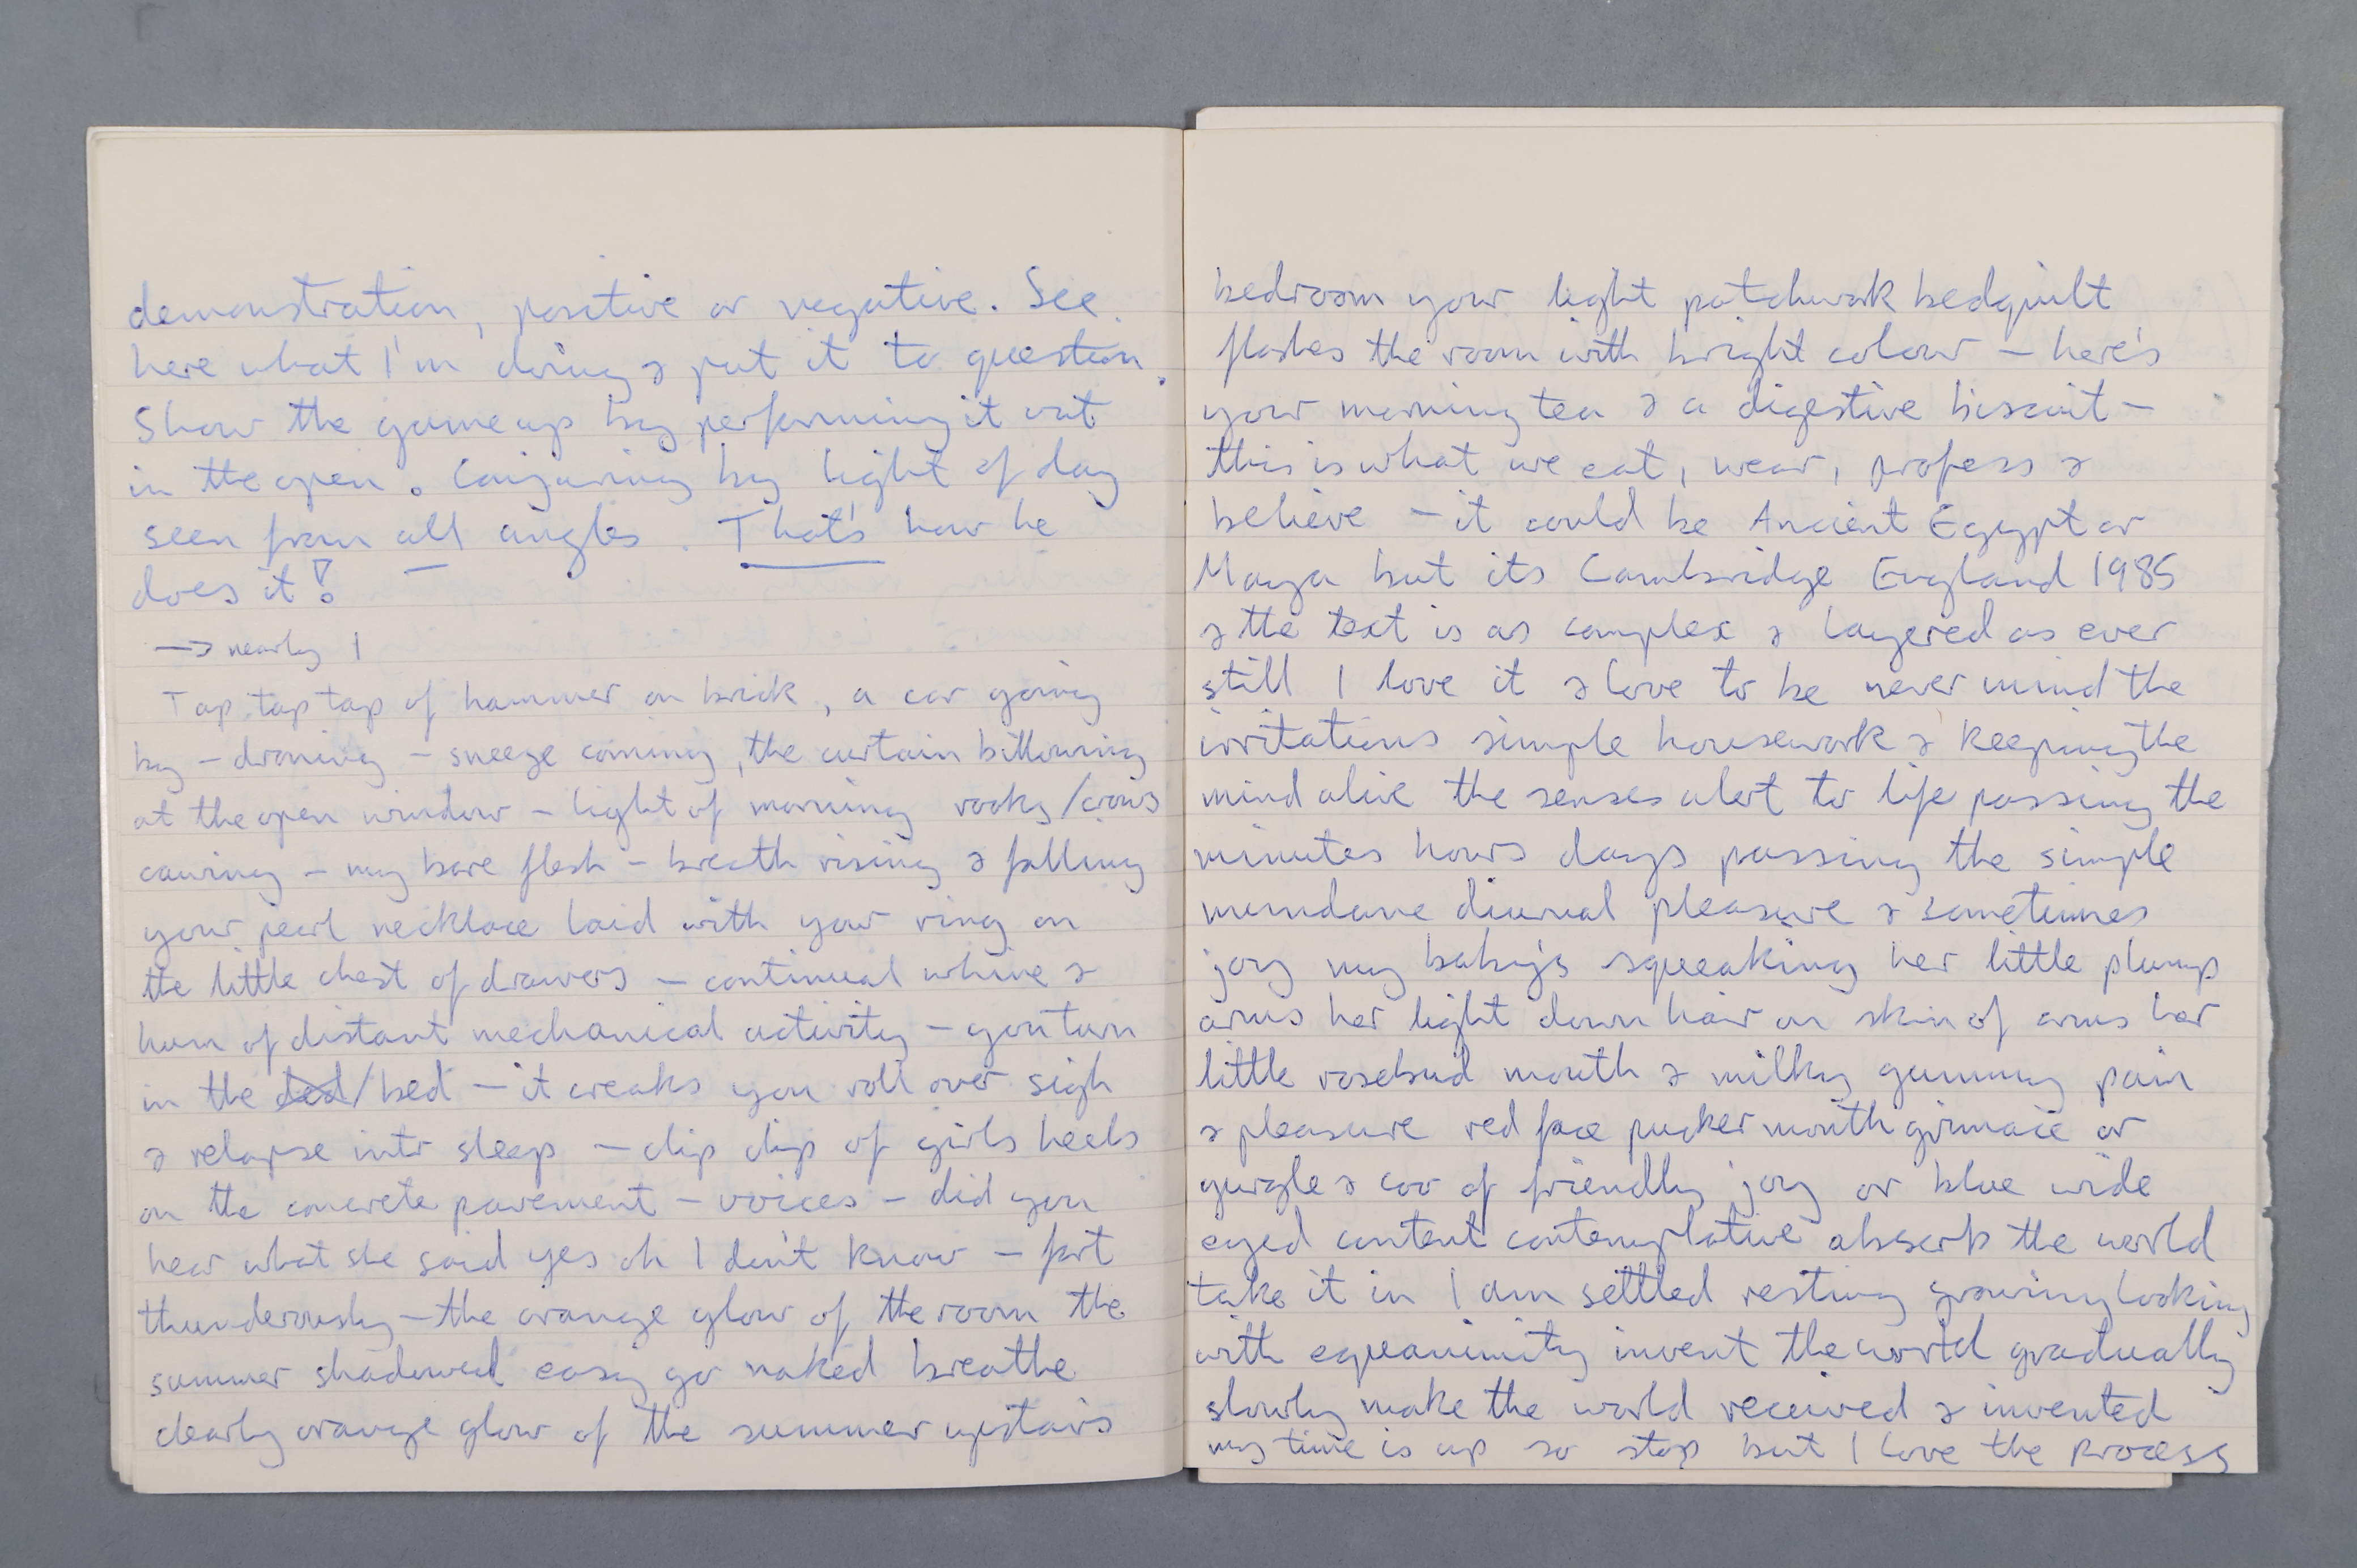 demonstration, positive or negative. See
here what I'm doing & put it to question.
Show the game up by performing it out
in the open. Conjuring by light of day
seen from all angles. That's how he
does it!
→ nearly 1
Tap tap tap of hammer on brick, a car going
by - droning - sneeze coming, the curtain billowing
at the open window - light of morning rooks/crows
cawing - my bare flesh - breath rising & falling
your pearl necklace laid with your ring on
the little chest of drawers - continual whine &
hum of distant mechanical activity - you turn
in the bed/bed - it creaks you roll over sigh
& relapse into sleep - clip clip of girls heels
on the concrete pavement - voices - did you
hear what she said yes oh I don't know - fart
thunderously - the orange glow of the room the
summer shadowed easy go naked breathe
clearly orange glow of the summer upstairs
bedroom your light patchwork bedquilt
flashes the room with bright colour - here's
your morning tea & a digestive biscuit -
this is what we eat, wear, profess &
believe - it could be Ancient Egypt or
Maya but its Cambridge England 1985
& the text is as complex & layered as ever
still I love it & love to be never mind the
irritations simple housework & keeping the
mind alive the senses alert to life passing the
minutes hours days passing the simple
mundane diurnal pleasure & sometimes
joy my baby's squeaking her little plump
arms her light down hair on skin of arms her
little rosebud mouth & milky gummy pain
& pleasure red face pucker mouth grimace or
gurgle & coo of friendly joy or blue wide
eyed content contemplative absorb the world
take it in I am settled resting growing looking
with equanimity invent the world gradually
slowly make the world received & invented
my time is up so stop but I love the process